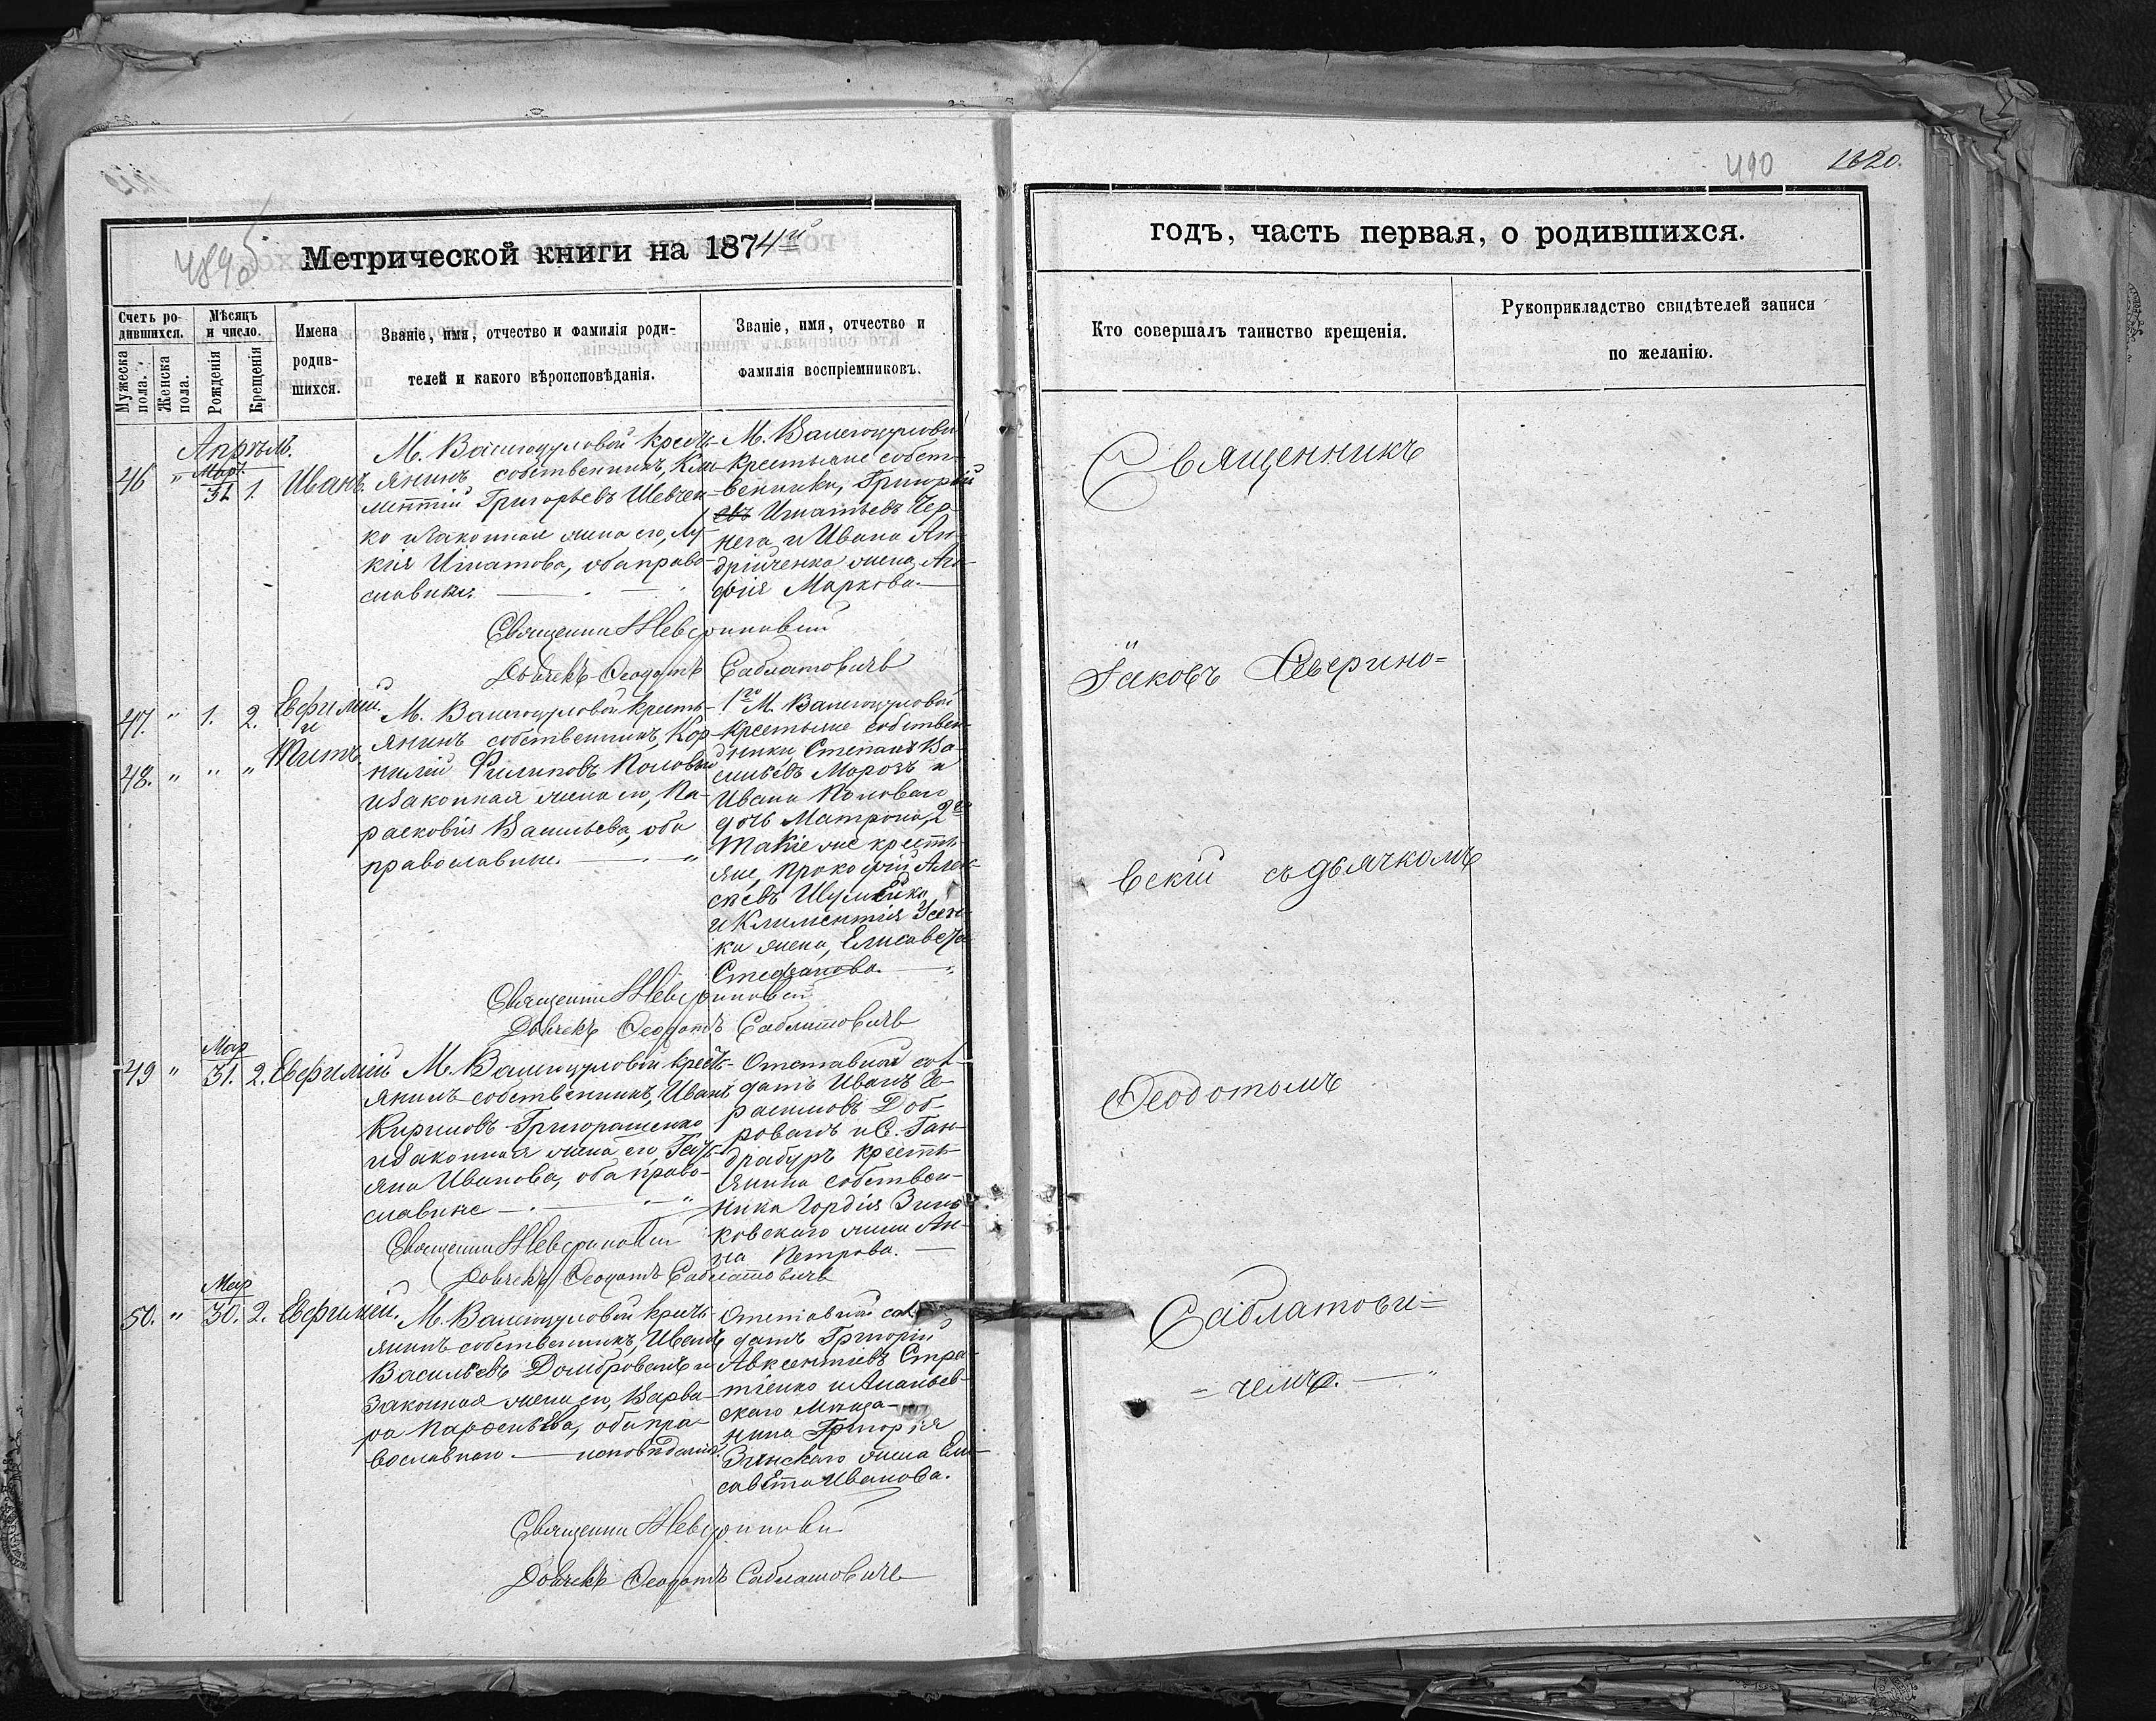 489об
Метрической книги на 1874й
Счетъ ро-
дившихся.
Мѣсяцъ
и число.
Мужеска
пола.
Женска
пола.
Рожденія
Крещенія
Имена
родив-
шихся.
Званіе, имя, отчество и фамилія роди-
телей и какого вѣроисповѣданія.
Званіе, имя, отчество и
фамилія воспріемниковъ.
Апрѣль.
46 " Мар. 31 1. Иванъ.
М. Валегоцуловой кресть-
янинъ собственникъ, Кли-
ментій Григорьевъ Шевчен-
ко и законная жена его, Лу-
кія Игнатова, оба право-
славные.
М. Валегоцуловой
крестьяне собст-
венники, Григорій
евъ Игнатьевъ Чер-
нега и Ивана Ан-
дрійченка жена, Ага-
фія Маркова.
Священни Я Неверановскій
Дьячекъ Ѳеодотъ Саблатовичъ
47. " 1. 2. Евфимій.
и
48. " " " Титъ
М. Валегоцуловой кресть-
янинъ собственникъ, Кор-
нилій Филиповъ Половый
и законная жена его, Па-
расковія Васильева, оба
православные.
1го М. Валегоцуловой
крестьяне собствен-
ники Степанъ Ва-
сильевъ Морозъ и
Ивана Половаго
дочь Матрона, 2го
такіе же кресть
яне, Прокофій Алек-
сѣевъ Шулейко,
и Климентія Усен-
ка жена, Елисавета
Стефанова.
Дьячекъ Ѳеодотъ Саблатовичъ
49 " Мар 31. 2. Евфимій
М. Валегоцуловой кресть-
янинъ собственникъ, Иванъ
Кириловъ Григорашенко
и законная жена его, Тать-
яна Иванова, оба право-
славные
Отставной сол-
датъ Иванъ Ге-
расимовъ Доб-
рованъ и С. Ган-
драбуръ кресть-
янина собствен-
ника Гордія Зинь
ковскаго жена Ан-
на Петрова.
Дьячекъ Ѳеодотъ Саблатовичъ
50. " Мар 30. 2. Евфимій.
М. Валегоцуловой кресть-
янинъ собственникъ, Иванъ
Васильевъ Домброванъ и
законная жена его, Варва-
ра Парфеньева, оба пра-
вославнаго исповѣданія.
Отставной сол
датъ Григорій
Авксентіевъ Стра-
тіенко и Ананьев-
скаго мѣща-
нина Григорія
жена Ели-
савета Иванова.
Дьячекъ Ѳеодотъ Саблатовичъ
490 1620.
годъ, часть первая, о родившихся.
Кто совершалъ таинство крещенія.
Рукоприкладство свидѣтелей записи
по желанію.
Священникъ
Іаковъ Аверино=
вскій съ дьячкомъ
Ѳеодотомъ
Саблатови=
=чемъ.